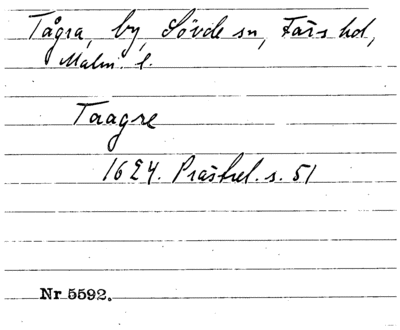 Tågra, by, Sövde sn, Färs hd,
Malm. l.
Taagre
1624. Prästrel. s. 51
Nr 5592.